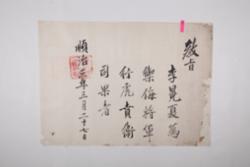 敕旨
李晃夏為
禦侮將軍
行虎賁衛
司果者
順治三年三月二十七日